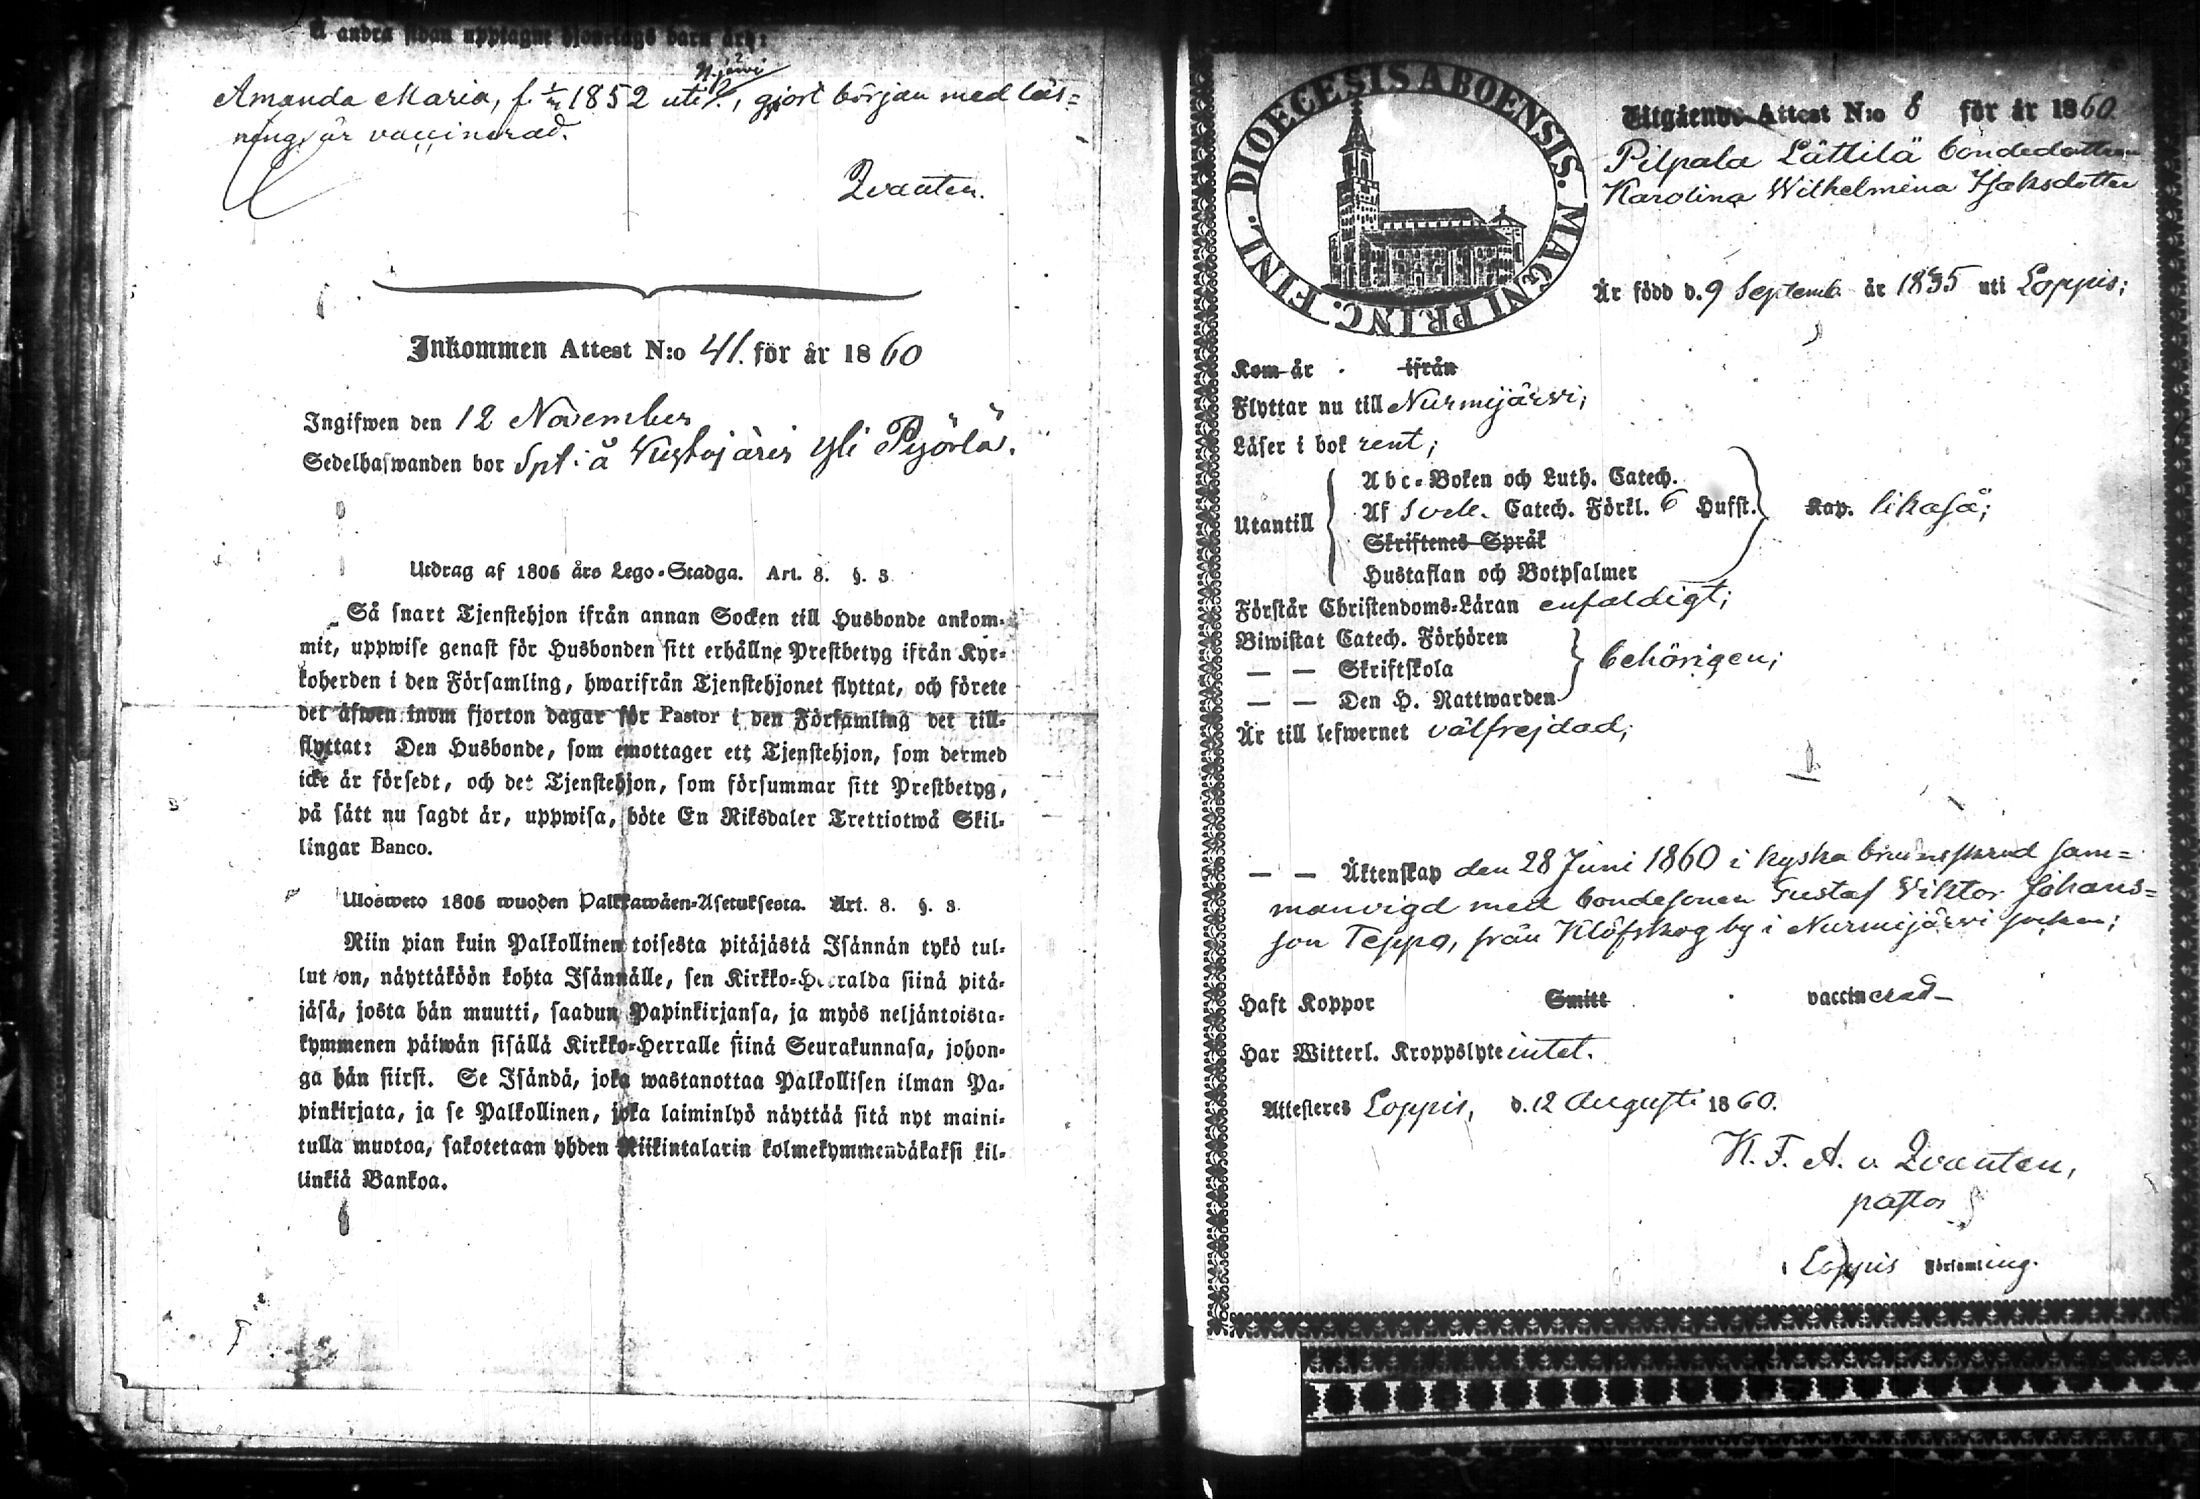 å andra sidan upptagne hjonelags barn äro:
N.järvi
Amanda Maria, f. 1852 uti, gjort början med läs=
ning, är vaccinerad.
Zvanten.
Inkommen Attest N:o 41. för år 1860
Ingifwen den 12 November
Sedelhafwanden bor Spt: å yli Pyörlä.
Utdrag af 1805 års Lego-Stadga. Art. 8. §. 3.
Så snart Tjenstehjon ifrån annan Socken till Husbonde ankom-
mit, uppwise genast för Husbonden sitt erhållne Prestbetyg ifrån Kyr-
koherden i den Församling, hwarifrån Tjenstehjonet flyttat, och förete
det äfwen inom fjorton dagar för Pastor i den Församling det till-
flyttat: Den Husbonde, som emottager ett Tjenstehjon, som dermed
icke är försedt, och det Tjenstehjon, som försummar sitt Prestbetyg,
på sätt nu sagdt är, uppwisa, böte En Riksdaler Trettiotwå Skil-
lingar Banco.
Ulosweto 1805 wuoden Palkkawäen-Asetuksesta. Art. 8. §. 3.
Niin pian kuin Palkollinen toisesta pitäjästä Isännän tykö tul-
lut on, näyttäköön kohta Isännälle, sen Kirkko-Herralda siinä pitä-
jäsä, josta hän muutti, saadun Papinkirjansa, ja myös neljäntoista-
kymmenen päiwän sisällä Kirkko-Herralle siinä Seurakunnasa, johon-
ga hän siirsi. Se Isändä, joka wastanottaa Palkollisen ilman Pa-
pinkirjata, ja se Palkollinen, joka laiminlyö näyttää sitä nyt maini-
tulla muotoa, sakotetaan yhden Riikintalarin kolmekymmendäkaksi kil-
linkiä Bankoa.
DIOECESIS ABOENSIS. MAGNI PRINC. FINL.
Utgående Attest N:o 8 för år 1860.
Pilpala Lättilä bondedottren
Karolina Wilhelmina Isaksdotter
Är född d. 9 Septemb. år 1835 uti Loppis;
Kom år ifrån
Flyttar nu till Nurmijärvi;
Läser i bok rent;
Utantill
Abc-Boken och Luth. Catech.
Af Sveb. Catech. Förkl. 6 Hufst.
Skriftenes Språk
Hustaflan och Botpsalmer
Kap. likaså;
Förstår Christendoms-Läran enfaldigt;
Biwistat Catech. Förhören
— — Skriftskola
— — Den H. Nattwarden
behörigen;
Är till lefwernet välfrejdad;
— — Äktenskap den 28 Juni 1860 i kyska brudeskrud sam=
manvigd med bondesonen Gustaf Viktor Johans=
son Teppo, från Klöfskog by i Nurmijärvi socken;
Haft Koppor Smitt vaccinerad
Har Witterl. Kroppslyte intet.
Attesteres Loppis, d. 12 Augusti 1860.
K. F. A. v. Zvanten,
pastor
i Loppis Församling.